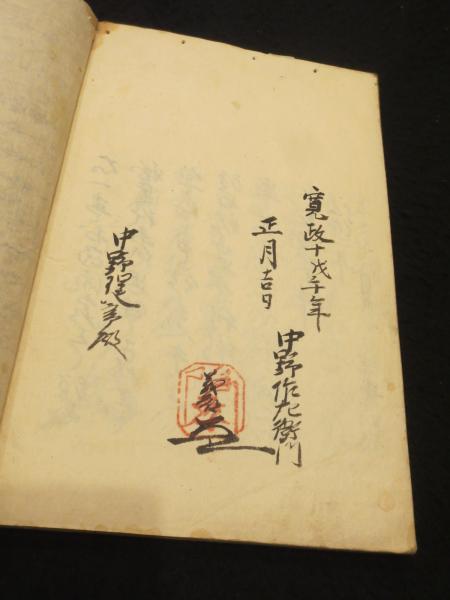 寛政十戊午年
正月吉日
中野作左衛門
中野
殿